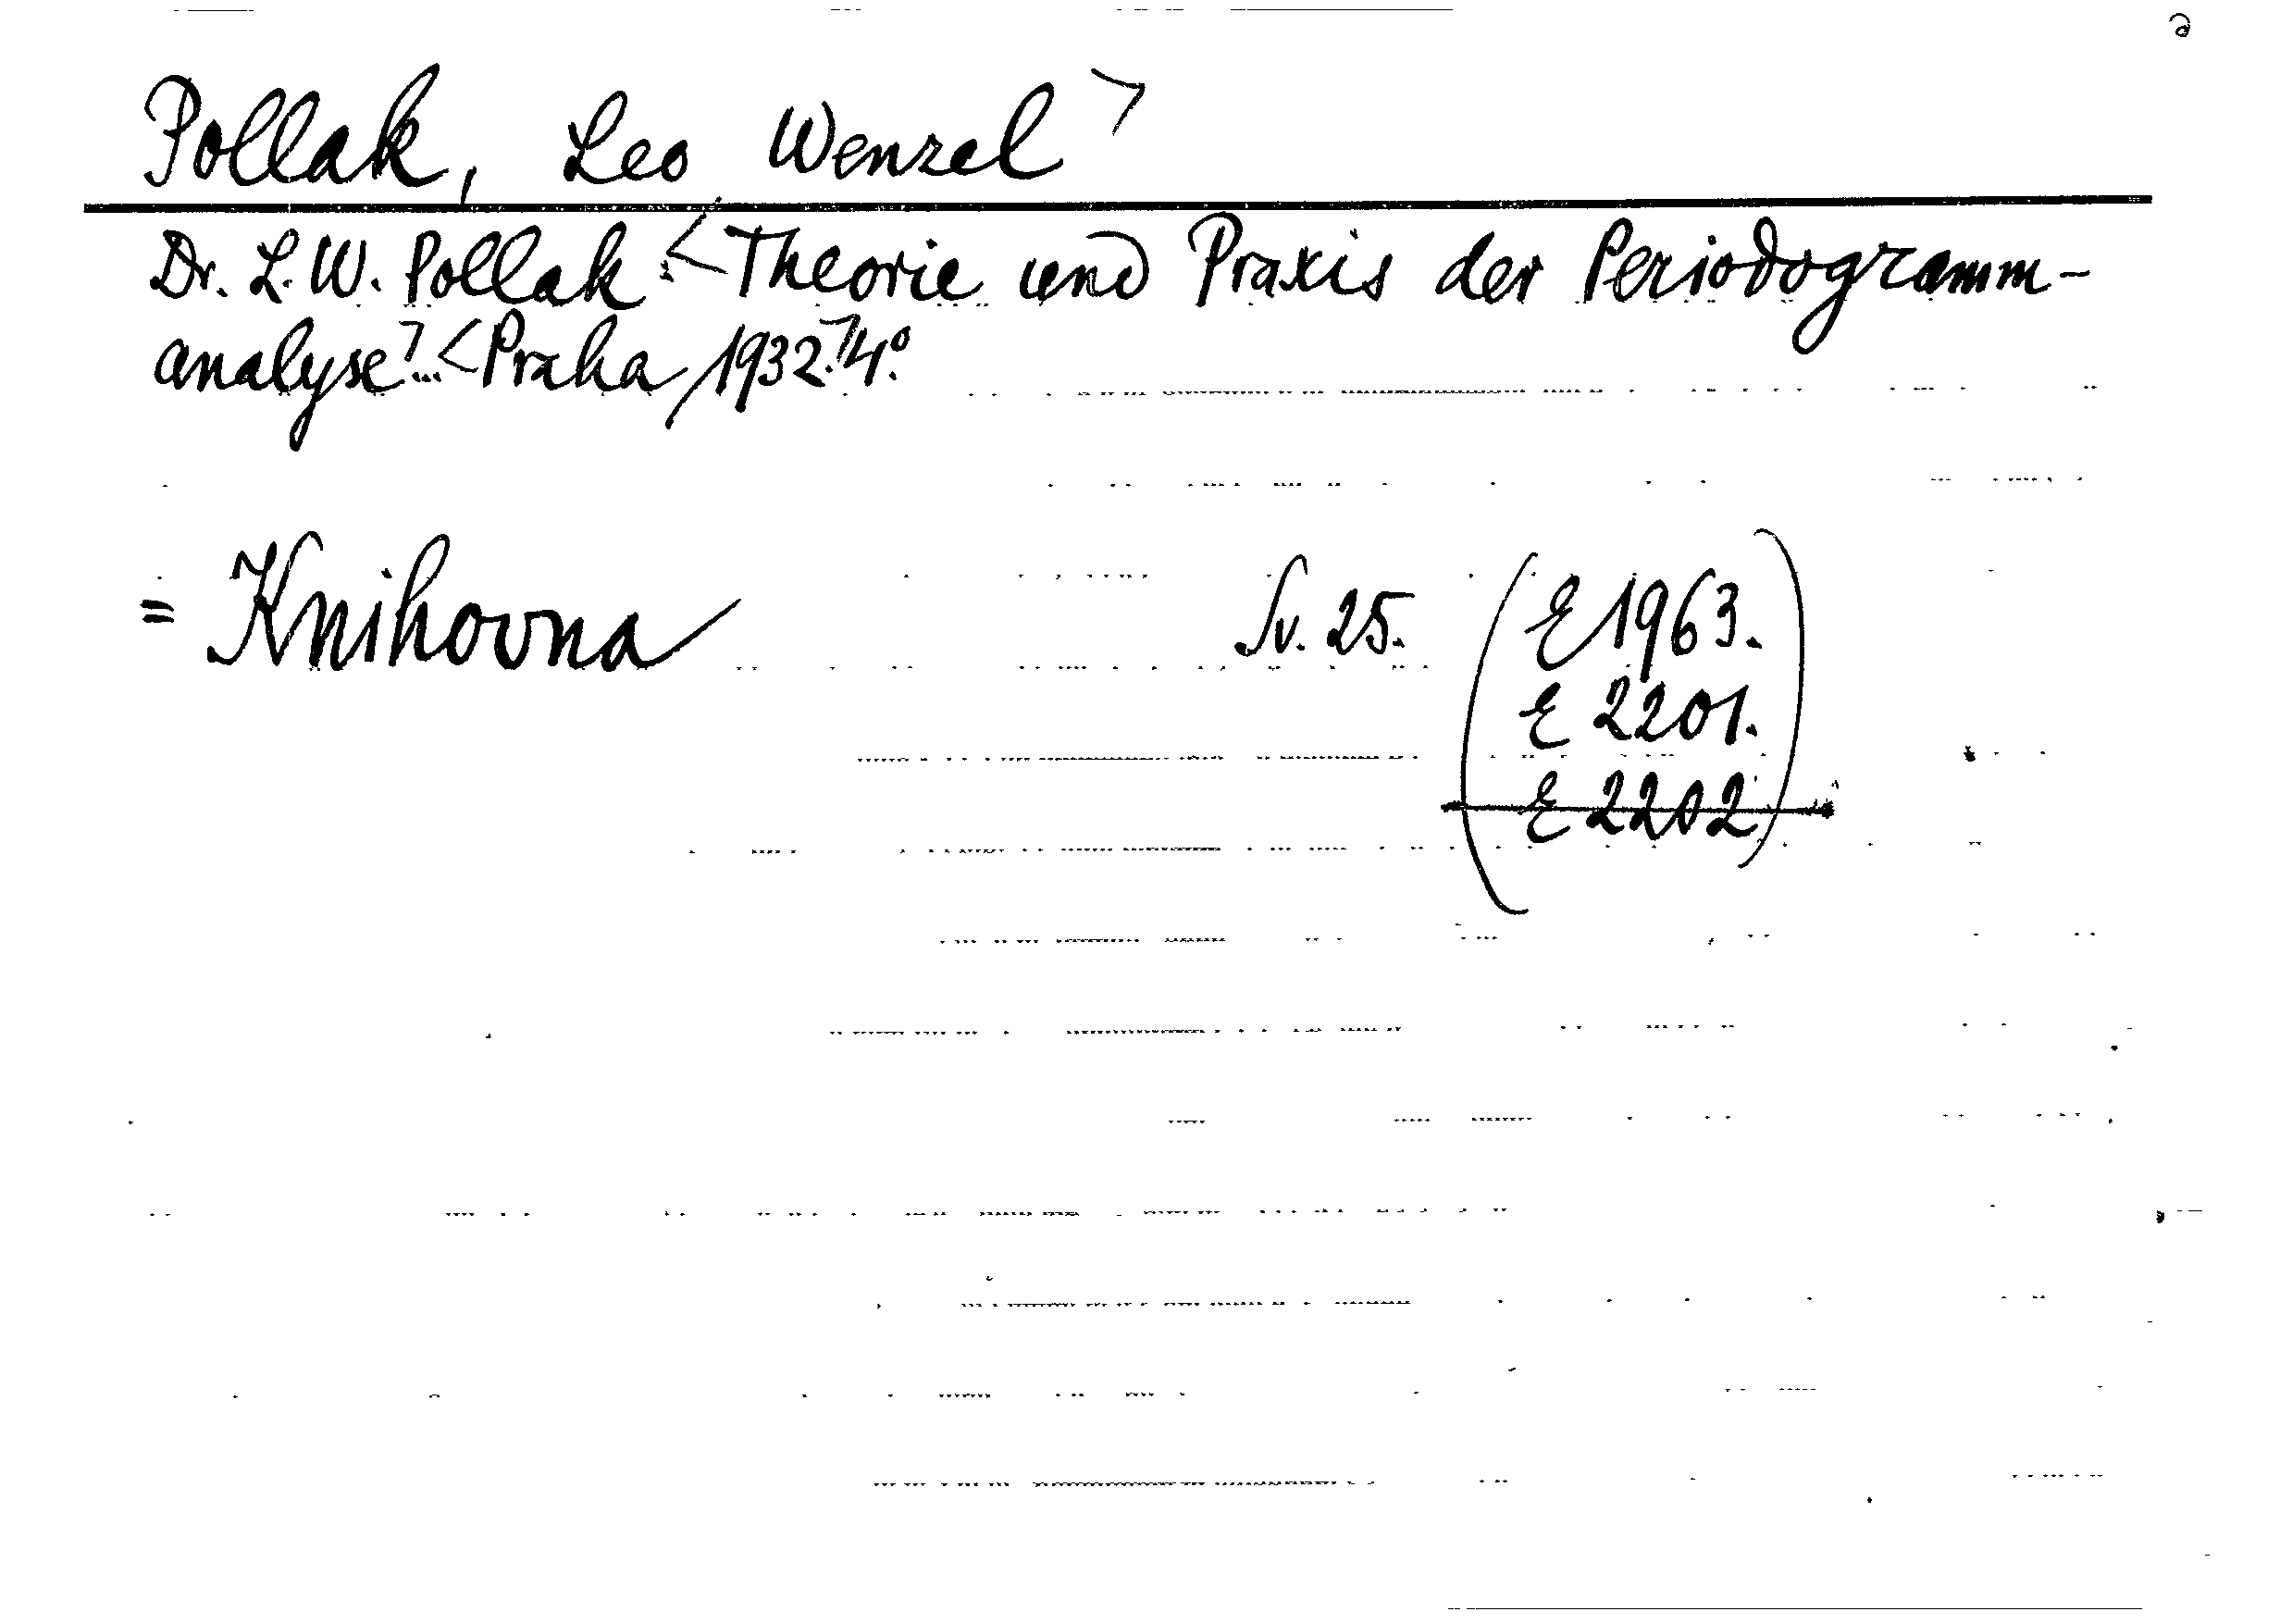 Pollak, Leo Wenzel
Dr. L. W. Pollak: Theorie und Praxis der Periodogramm-
analyse... Praha, 1932. 4º.
= Knihovna Sv. 25. (E 1963.
E 2201.
E 2202)